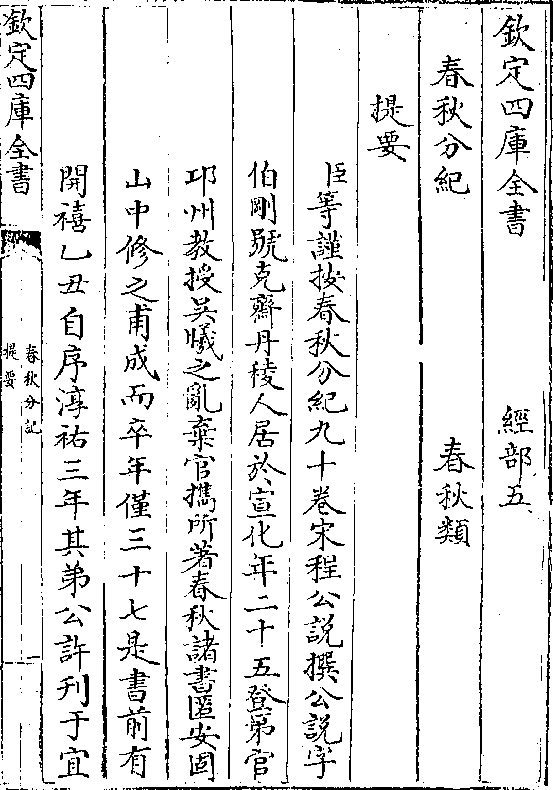 欽定四庫全書　經部五
春秋分紀　春秋類
提要
臣等謹按春秋分紀九十卷宋程公説撰公説字
伯剛號克齋丹稜人居於宣化年二十五登第官
邛州教授吳曦之亂棄官攜所著春秋諸書匿安固
山中修之甫成而卒年僅三十七是書前有
開禧乙丑自序淳祐三年其弟公許刊于宜
欽定四庫全書
春秋分記
提要